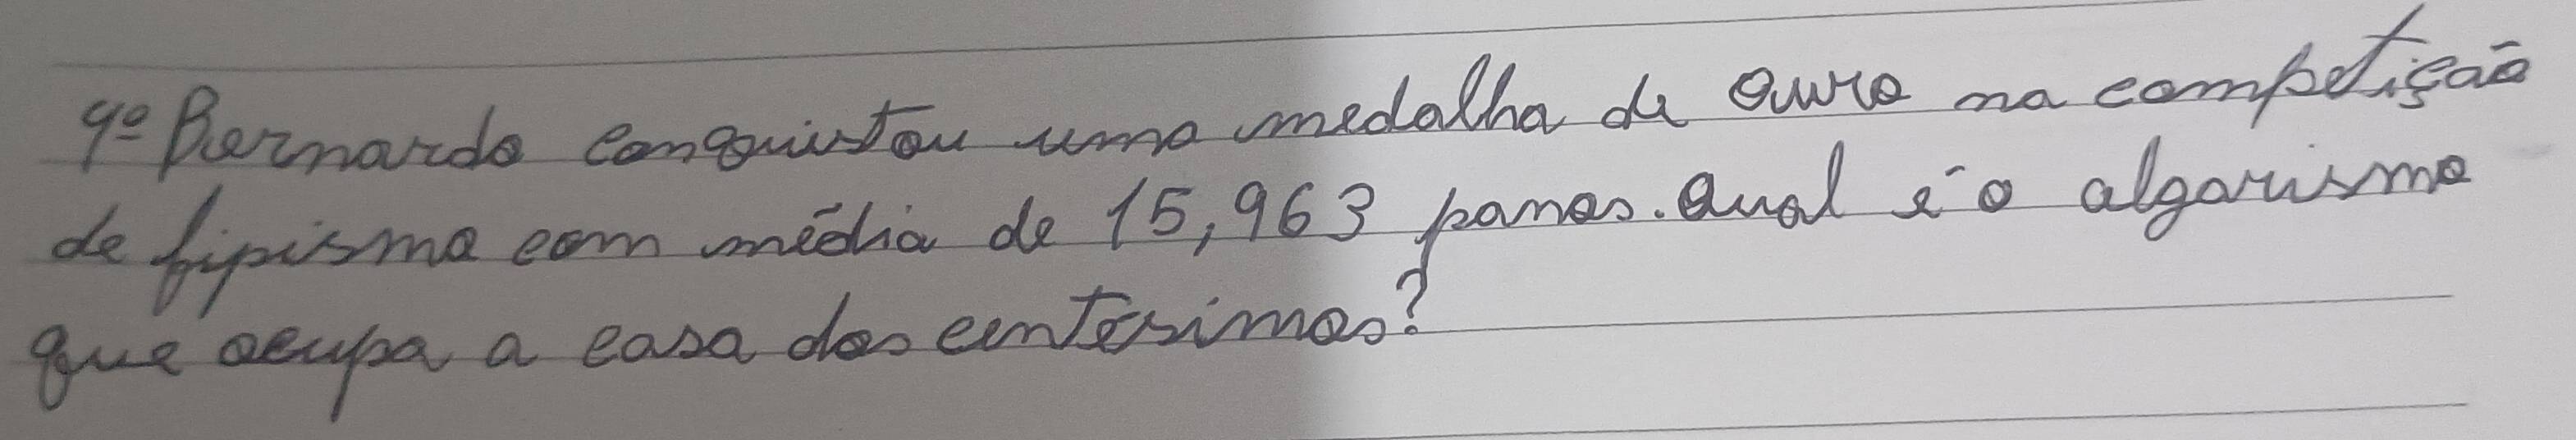 9º Bernardo conquistou uma medalha de ouro na competição
de fipismo com média de 15,963 panos. Qual é o algarismo
que ocupa a casa dos centésimos?